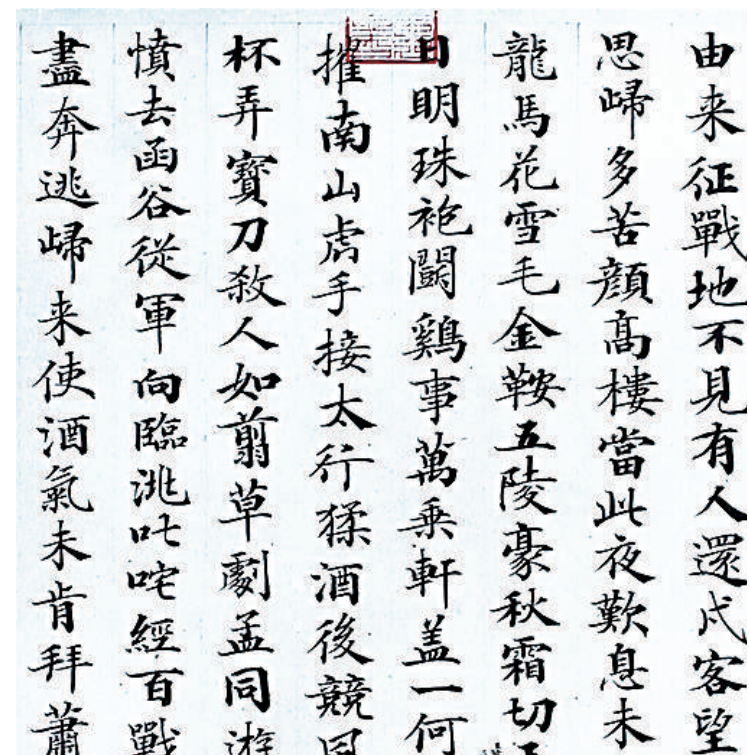 由来征戰地不見有人還戍客望
思歸多苦顔髙樓當此夜歎息未
龍馬花雪毛金鞍五陵豪秋霜切
日明珠袍鬭鷄事萬乗軒盖一何
摧南山虎手接太行猱酒後競
杯弄寶刀殺人如翦草劇孟同遊
憤去函谷從軍向臨洮叱咤經百戰
盡奔逃歸来使酒氣未肯拜蕭